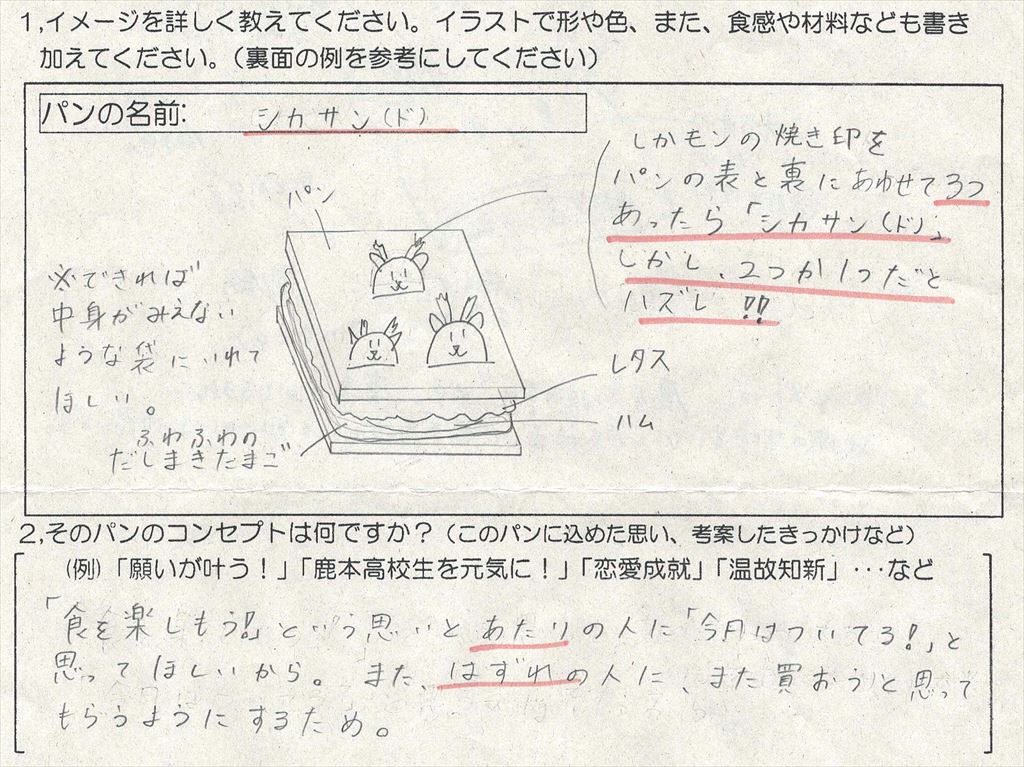 1,イメージを詳しく教えてください。イラストで形や色、また、食感や材料なども書き
加えてください。(裏面の例を参考にしてください)
パンの名前:
シカサン(ド)
しかモンの焼き印を
パンの表と裏にあわせて3つ
あったら「シカサン(ド)」
しかし、2つか1つだと
ハズレ!!
パン
※できれば
中身がみえない
ような袋にいれて
ほしい。
レタス
ハム
ふわふわの
だしまきたまご
2,そのパンのコンセプトは何ですか?(このパンに込めた思い、考案したきっかけなど)
(例)「願いが叶う!」「鹿本高校生を元気に!」「恋愛成就」「温故知新」・・・など
「食を楽しもう!」という思いとあたりの人に「今月はついてる!」と
思ってほしいから。また、はずれの人に、また買おうと思って
もらうようにするため。